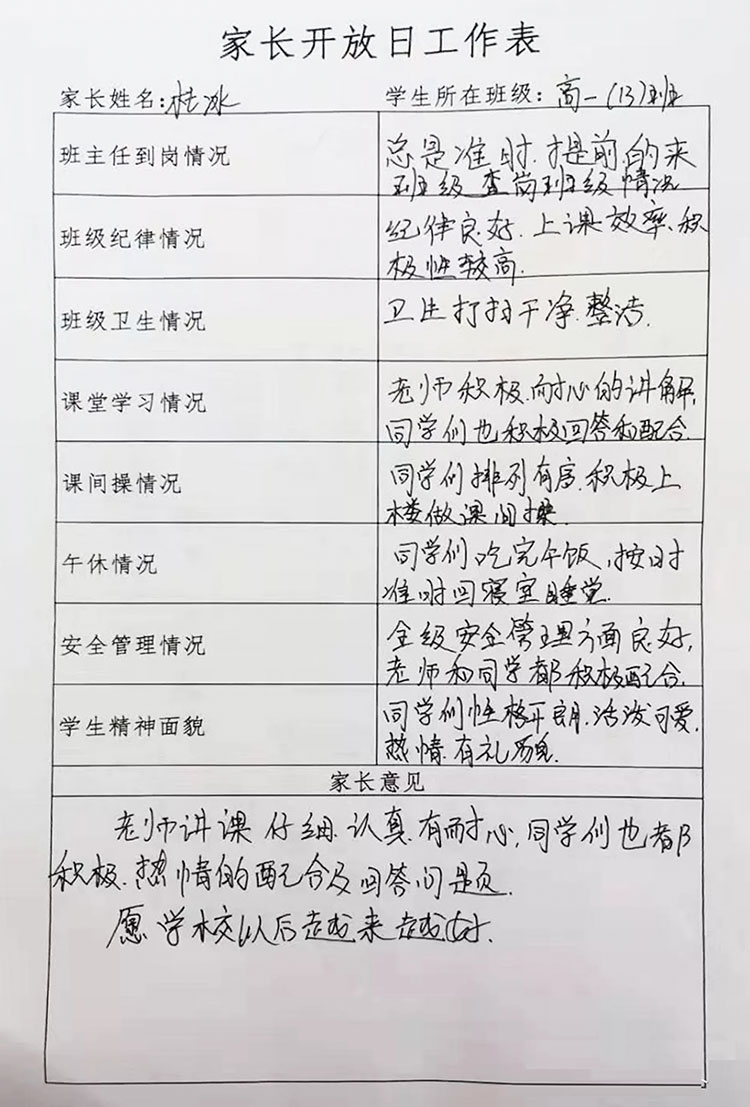 家长开放日工作表
家长姓名:杜冰 学生所在班级:高一(13)班
班主任到岗情况 总是准时.提前的来
班级查岗班级情况
班级纪律情况 纪律良好.上课效率.积
极性较高.
班级卫生情况 卫生打扫干净.整洁.
课堂学习情况 老师积极.耐心的讲解,
同学们也积极回答和配合.
课间操情况 同学们排列有序.积极上
楼做课间操.
午休情况 同学们吃完午饭,按时
准时回寝室睡觉.
安全管理情况 全级安全管理方面良好,
老师和同学都积极配合.
学生精神面貌 同学们性格开朗.活泼可爱,
热情.有礼貌.
家长意见
老师讲课仔细.认真.有耐心,同学们也都
积极.热情的配合及回答问题.
愿学校以后越来越好.